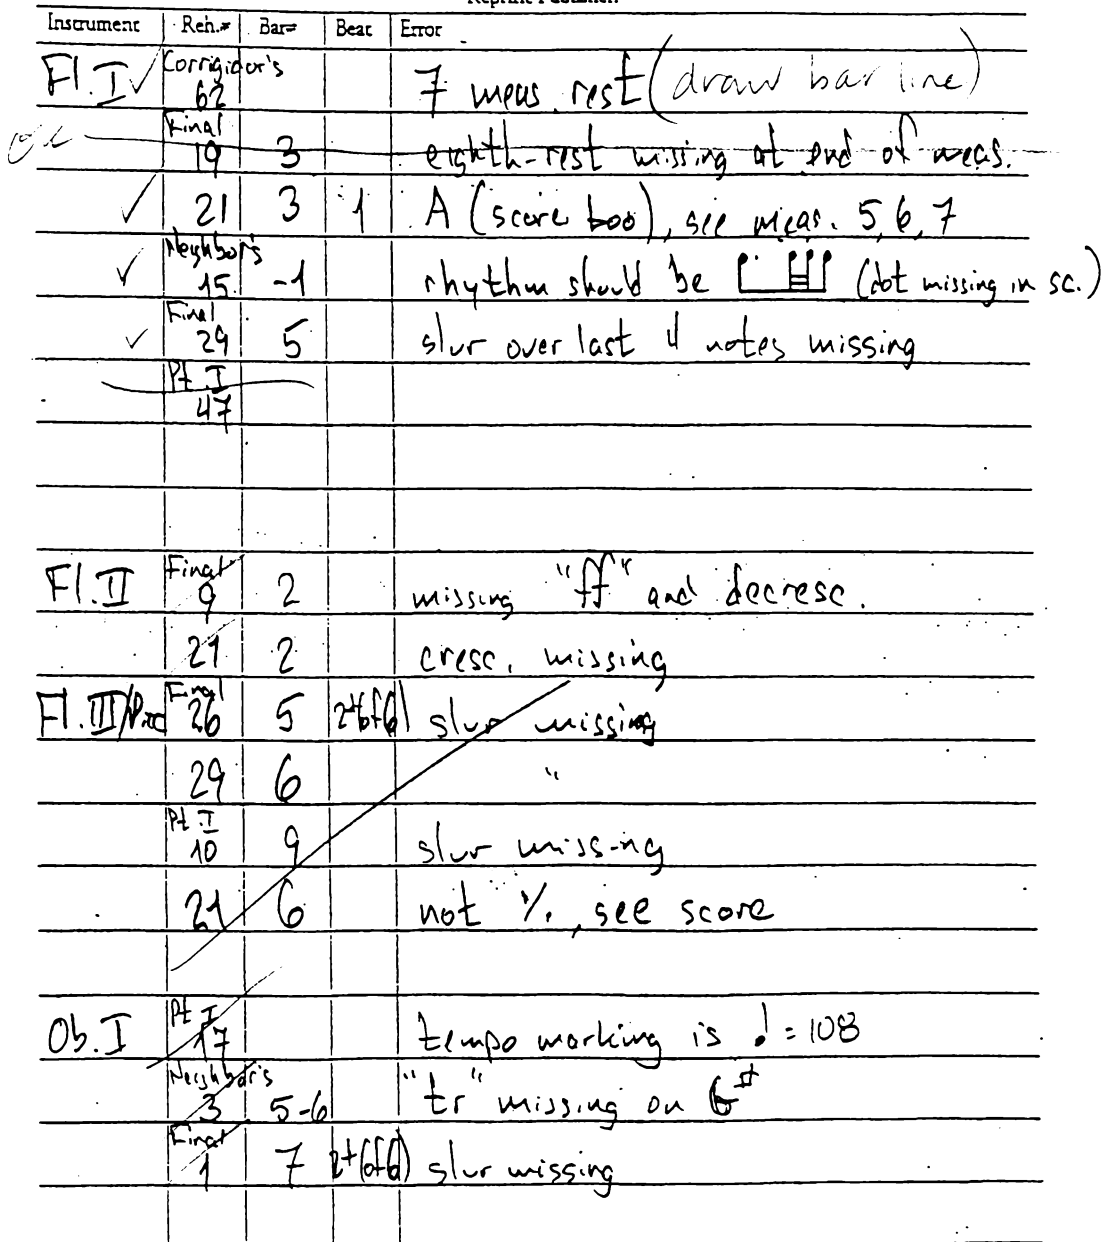 Instrument Reh.# Bar# Beat Error
Fl. I Corrigidor's 62 7 meas. rest (draw bar line)
Final 19 3 eighth-rest missing at end of meas.
21 3 1 A (score boo), see meas. 5, 6, 7
Neighbor's 15 -1 rhythm should be (dot missing in sc.)
Final 29 5 slur over last 4 notes missing
Pt. I 47
Fl. II Final 9 2 missing "ff" and decresc.
21 2 cresc. missing
Fl. III/Picc Final 26 5 2+(of 6) slur missing
29 6 "
Pt. I 10 9 slur missing
21 6 not %, see score
Ob. I Pt I 17 tempo working is ♩ = 108
Neighbor's 3 5-6 "tr" missing on G#
Final 1 7 2+(of 6) slur missing